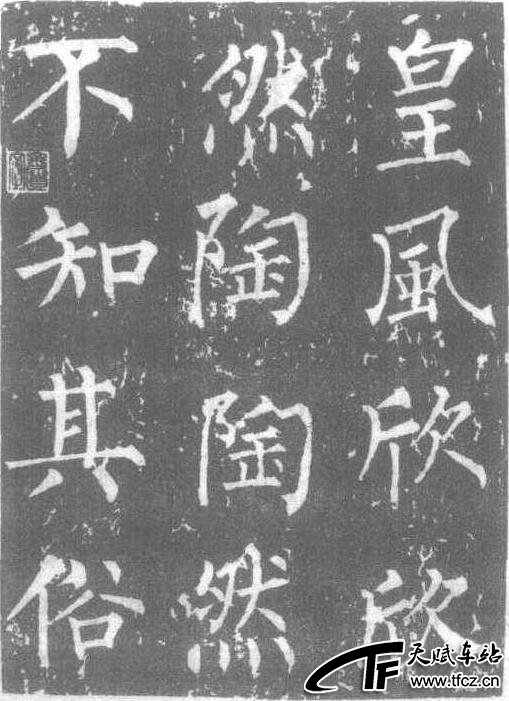 皇風欣欣
然陶陶然
不知其俗
天赋车站
www.tfcz.cn